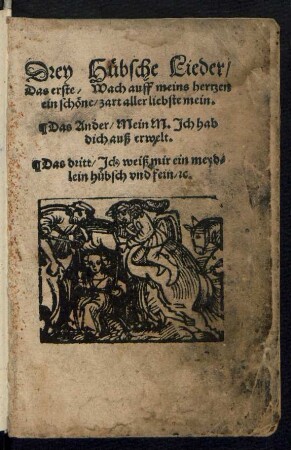 Drey Hübsche Lieder/
Das erste/ Wach auff meins hertzen
ein schöne/ zart aller liebste mein.
¶Das Ander/ Mein M. Ich hab
dich auß erwelt.
¶Das dritt/ Ich weiß mir ein meyd-
lein hübsch vnd fein/ ꝛc.